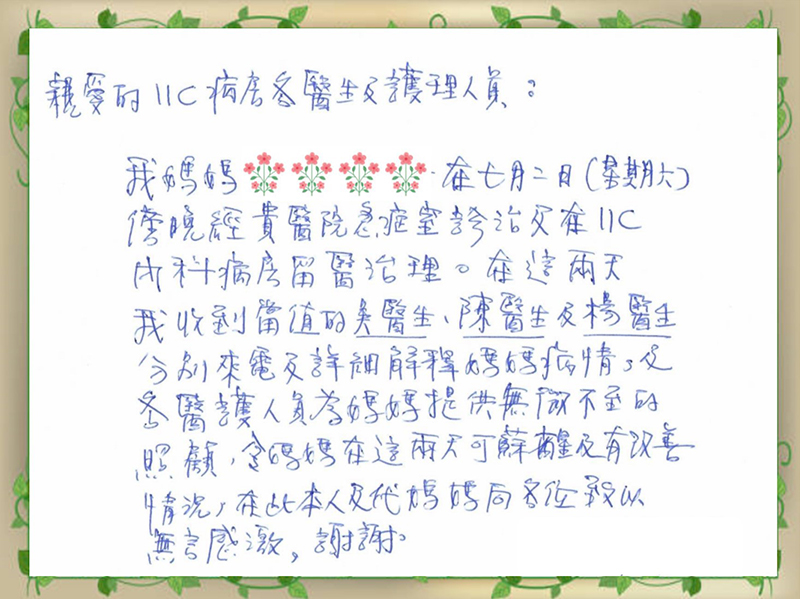 親愛的11C病房各醫生及護理人員：
我媽媽 在七月二日(星期六)
傍晚經貴醫院急症室診治及在11C
內科病房留醫治理。在這兩天
我收到當值的吳醫生、陳醫生及楊醫生
分別來電及詳細解釋媽媽病情，及
各醫護人員為媽媽提供無微不至的
照顧，令媽媽在這兩天可蘇醒及有改善
情況，在此本人及代媽媽向各位致以
無言感激，謝謝。